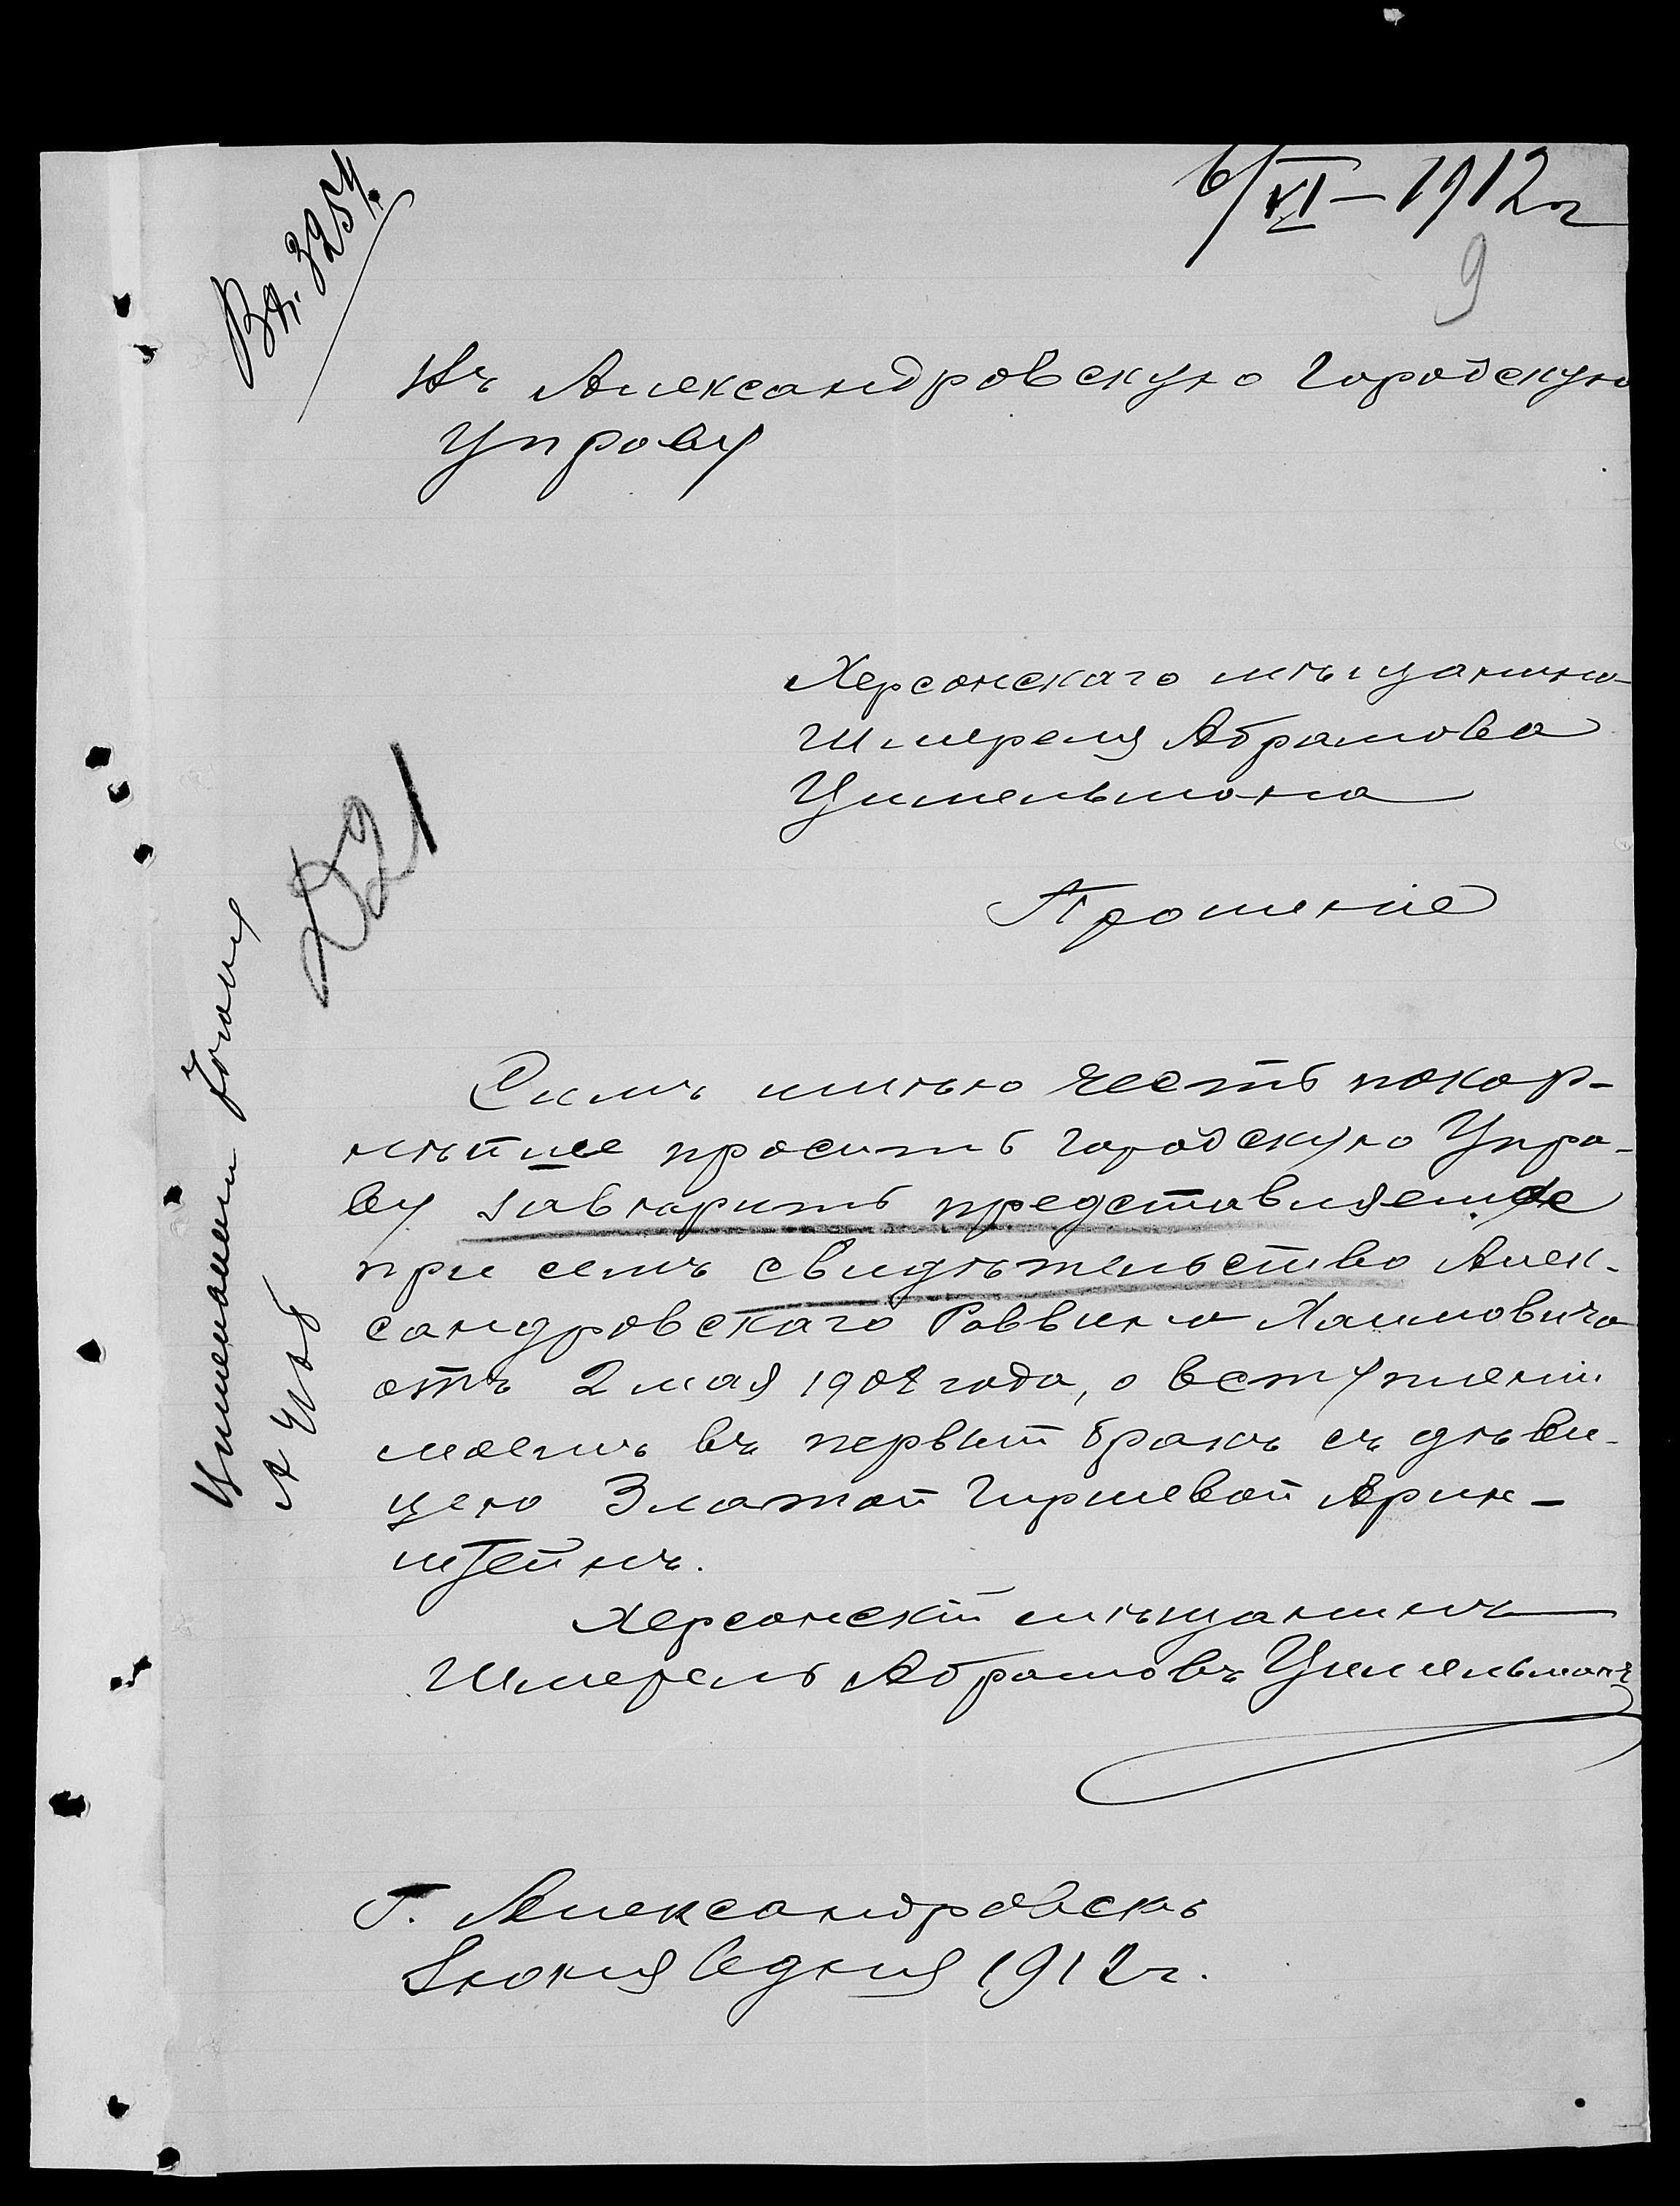 6/VI – 1912 г
9
Вх. 3254.
Въ Александровскую Городскую
Управу
Херсонскаго мѣщанина
Шмереля Абрамова
Цимельмана
Прошеніе
Симъ имѣю честь покор-
нѣйше просить Городскую Упра-
ву завѣрить представляемое
при семъ свидѣтельство Алек-
сандровскаго Раввина Хаимовича
отъ 2 мая 1907 года, о вступленіи
моемъ въ первый бракъ съ дѣви-
цею Златой Гиршевой Ярин-
штейнъ.
Херсонскій мѣщанинъ
Шмерель Абрамовъ Цимельманъ
Г. Александровскъ
Іюня 6 дня 1912 г.